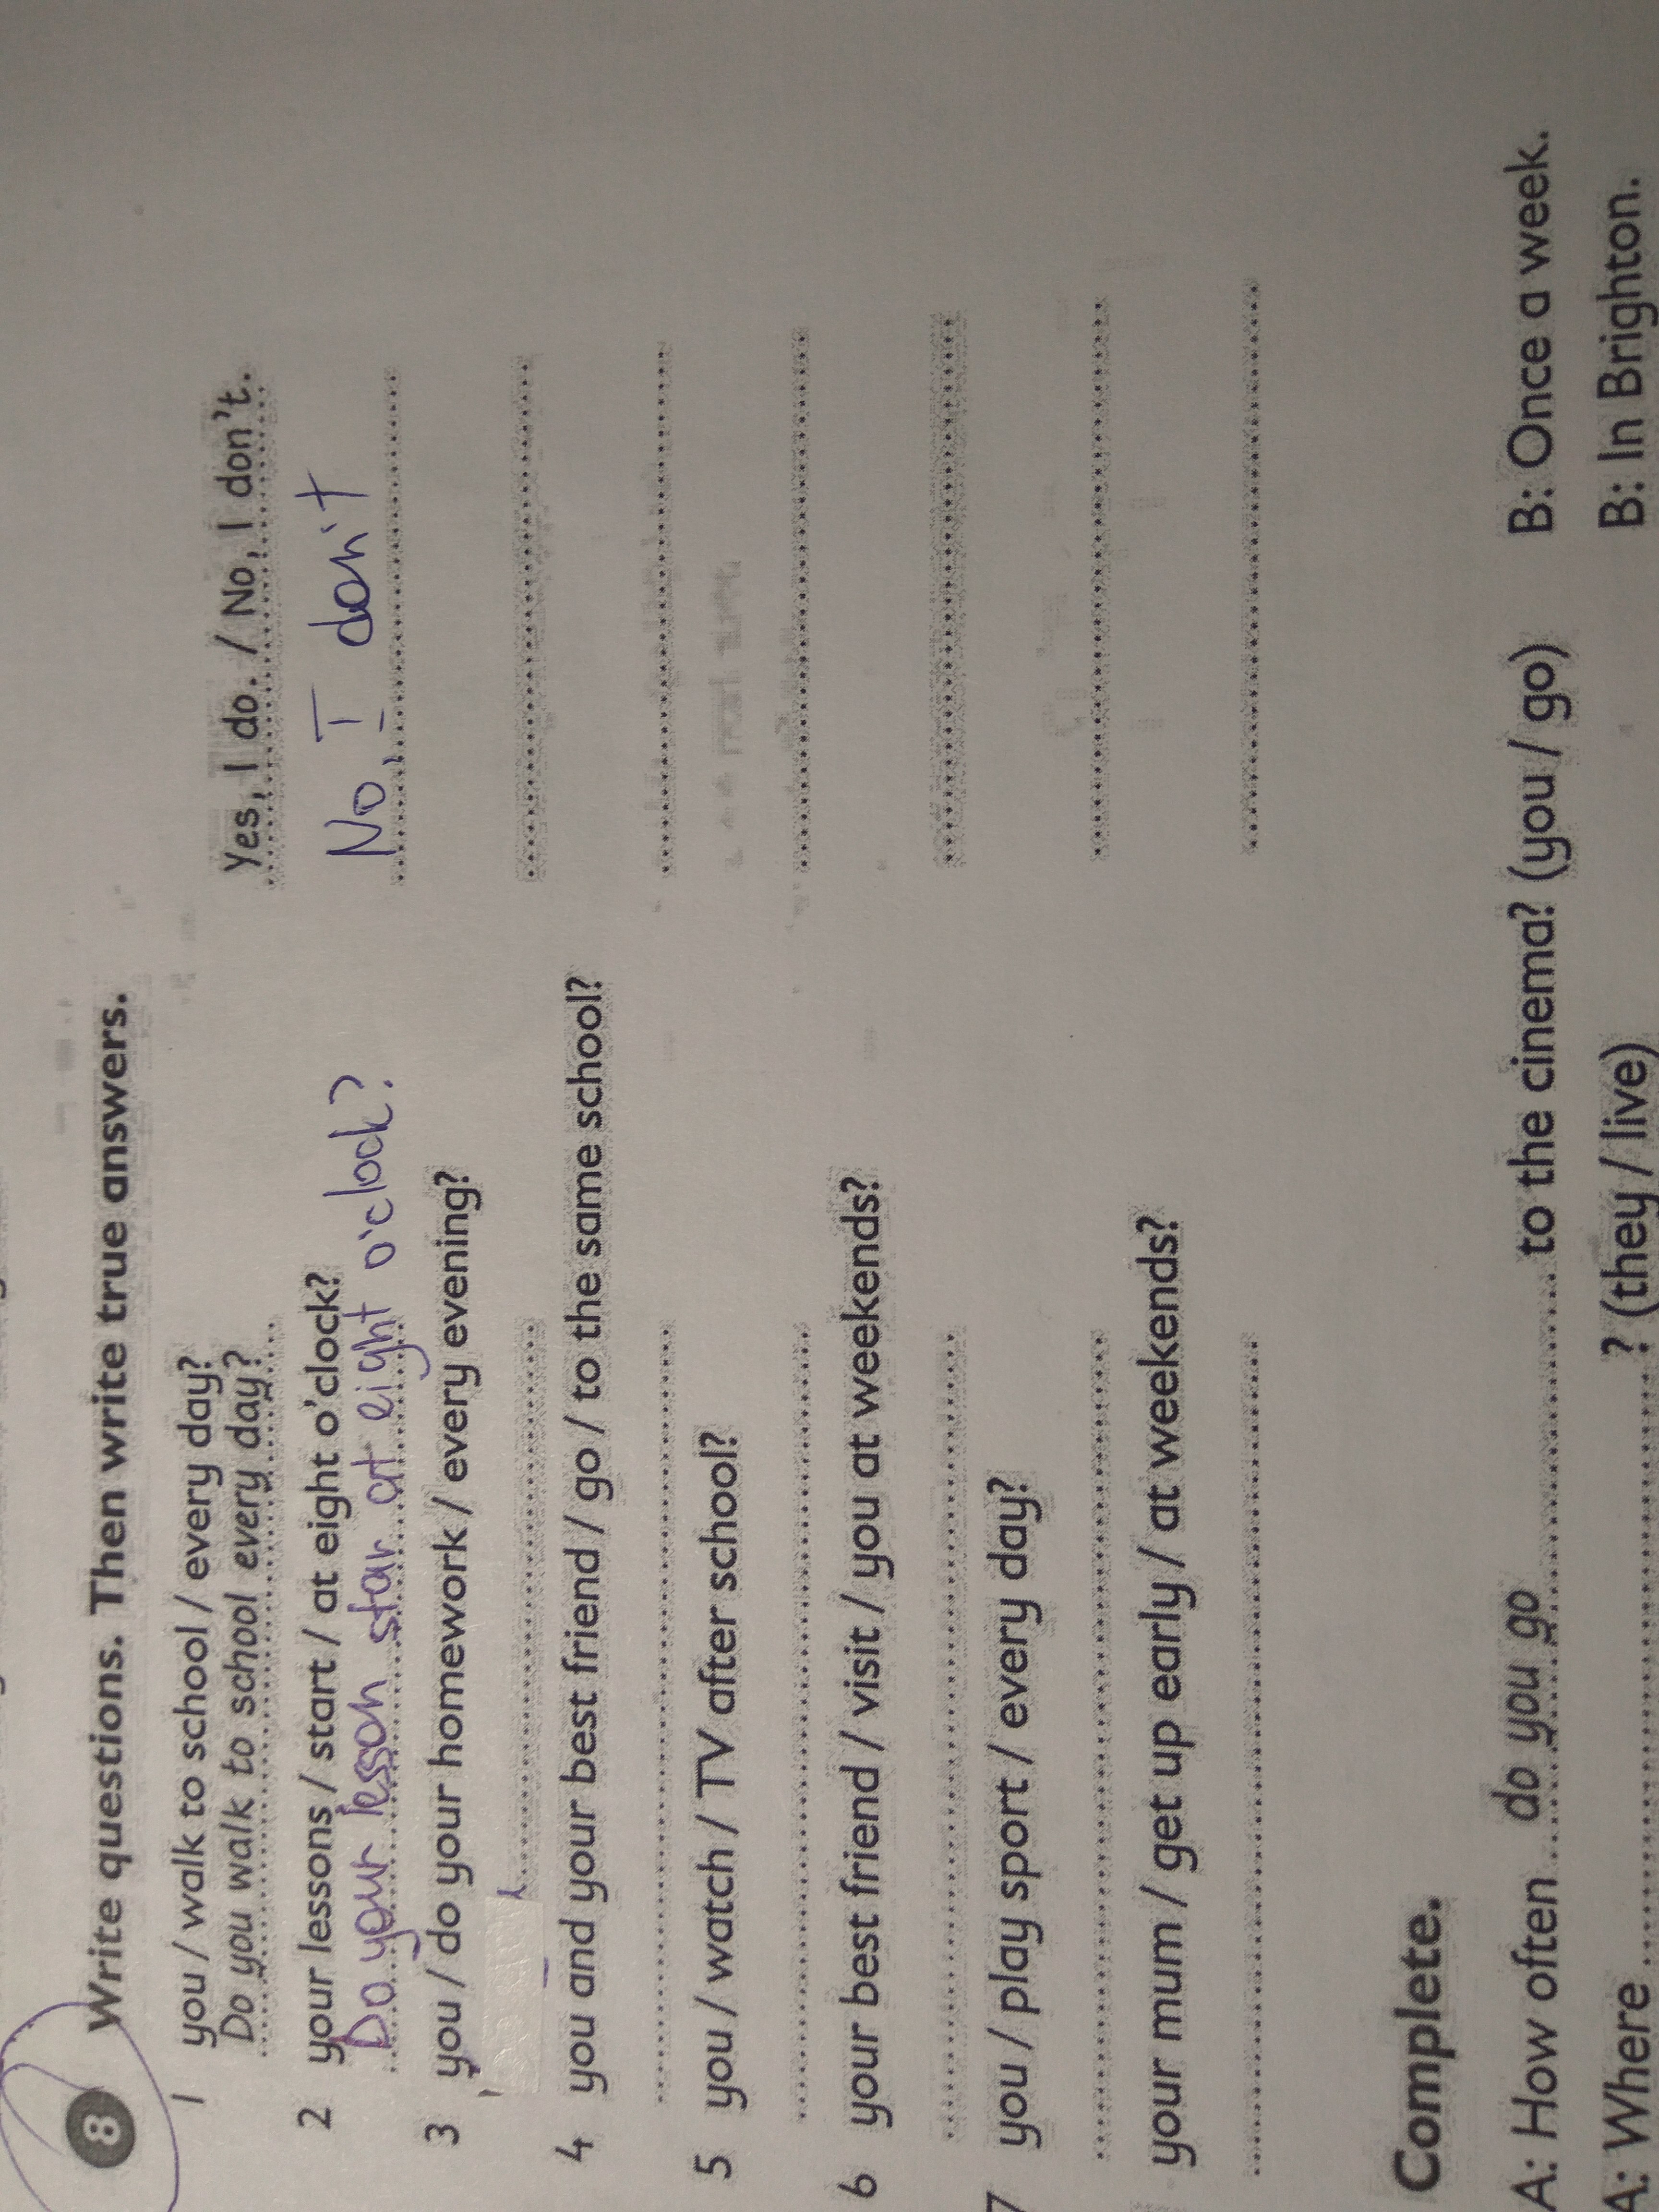 8 Write questions. Then write true answers.
1 you / walk to school / every day?
Do you walk to school every day? Yes, I do. / No, I don't.
2 your lessons / start / at eight o'clock?
Do your lesson star at eight o'clock? No, I don't
3 you / do your homework / every evening?
4 you and your best friend / go / to the same school?
5 you / watch / TV after school?
6 your best friend / visit / you at weekends?
7 you / play sport / every day?
your mum / get up early / at weekends?
Complete.
A: How often do you go to the cinema? (you / go) B: Once a week.
A: Where ? (they / live) B: In Brighton.